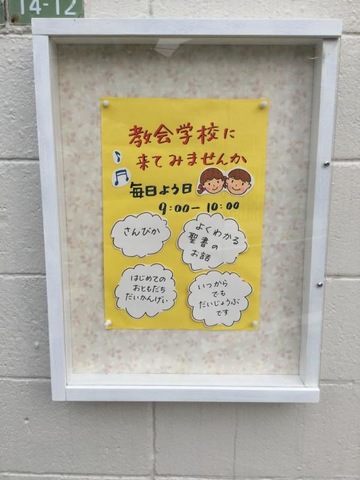 14-12
教会学校に
来てみませんか
毎日よう日
9:00-10:00
さんびか
よくわかる
聖書の
お話
はじめての
おともだち
だいかんげい
いつから
でも
だいじょうぶ
です